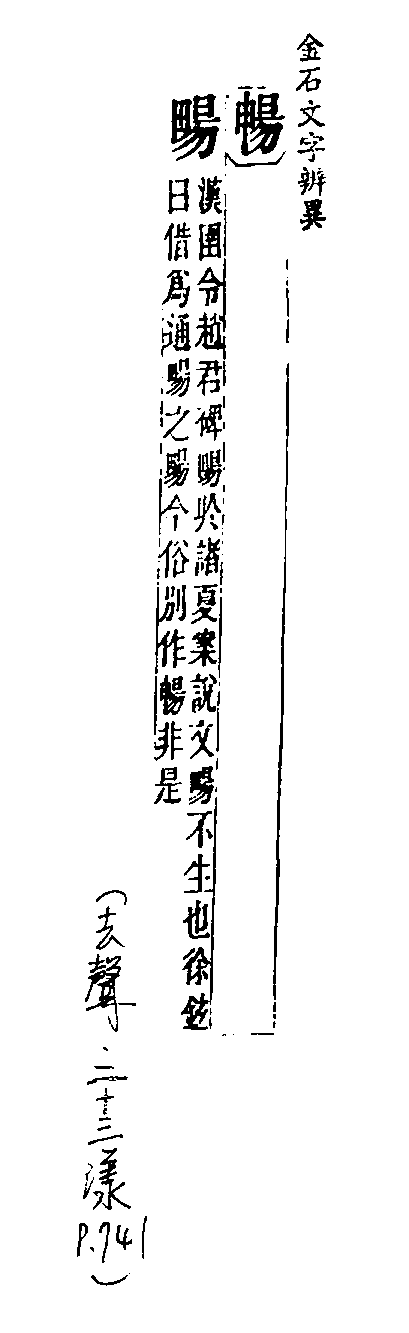 金石文字辨異
暢
畼
漢圉令趙君碑畼於諸夏案說文畼不生也徐鉉
曰借爲通畼之畼今俗別作暢非是
（去聲．二十三漾P.741）